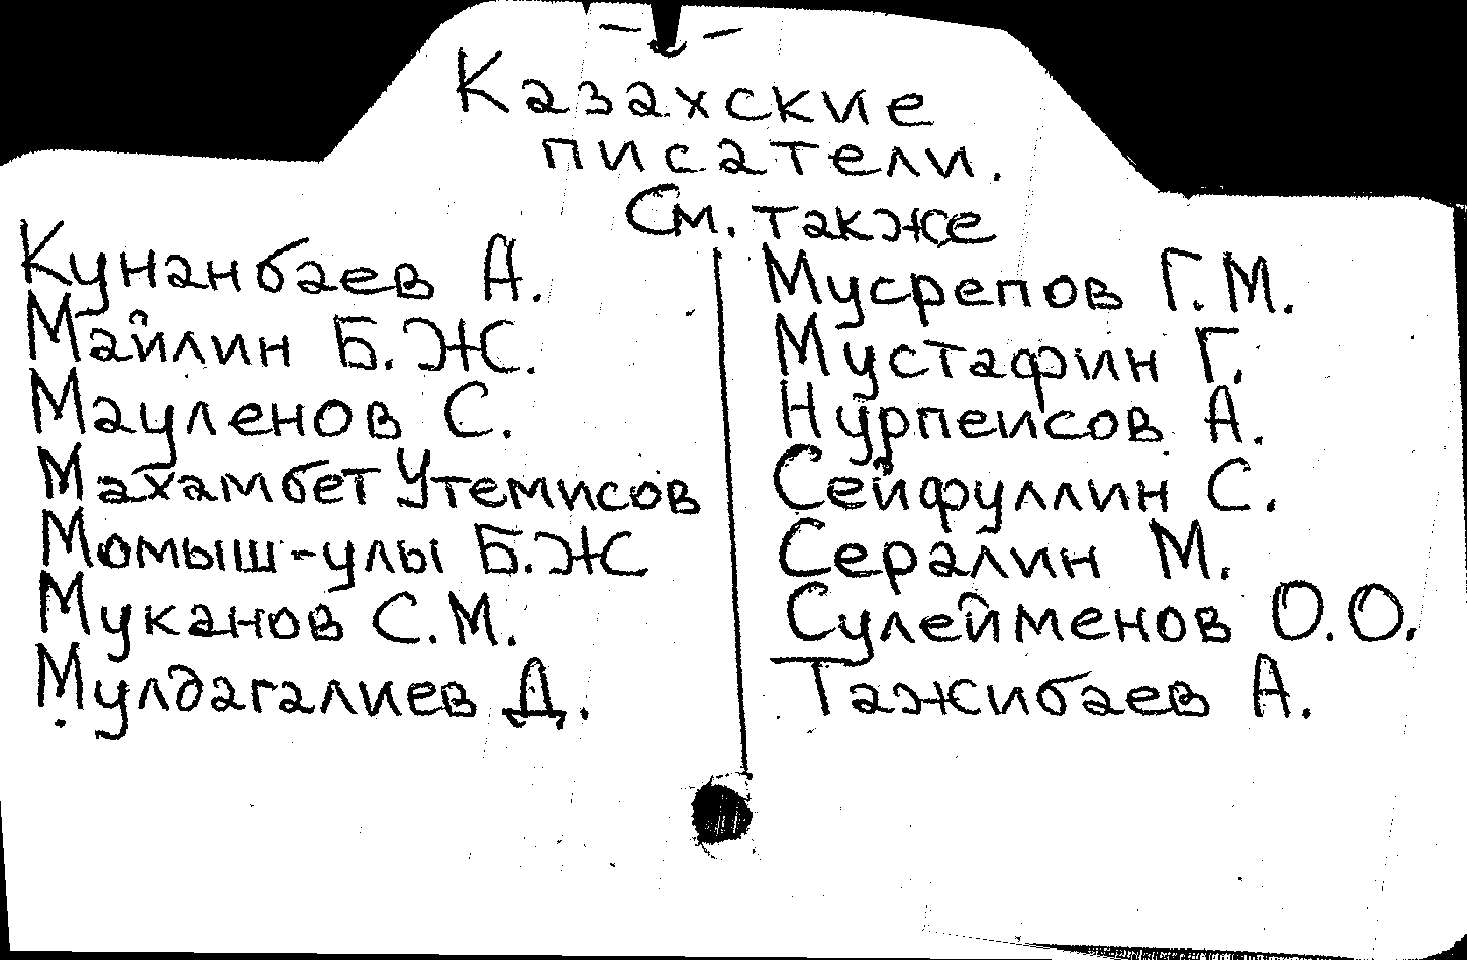 Казахские
писатели.
См. также
Кунанбаев А.
Майлин Б.Ж.
Мауленов С.
Махамбет Утемисов
Момыш-улы Б.Ж
Муканов С.М.
Мулдагалиев Д.
Мусрепов Г.М.
Мустафин Г.
Нурпеисов А.
Сейфуллин С.
Сералин М.
Сулейменов О.О.
Тажибаев А.